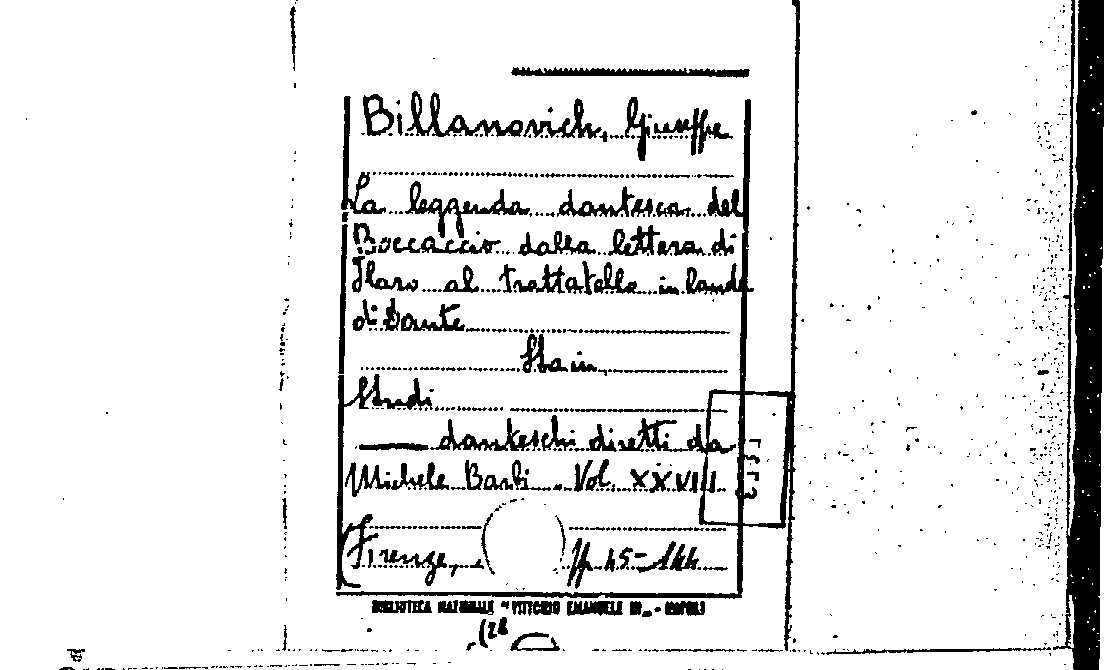 Billanovich, Giuseppe
La leggenda dantesca del
Boccaccio dalla lettera di
Ilaro al trattatello in laude
di Dante
Sta in
Studi
danteschi diretti da
Michele Barbi. Vol. XXVIII
(Firenze, pp. 45-144
BIBLIOTECA NAZIONALE "VITTORIO EMANUELE III" - NAPOLI